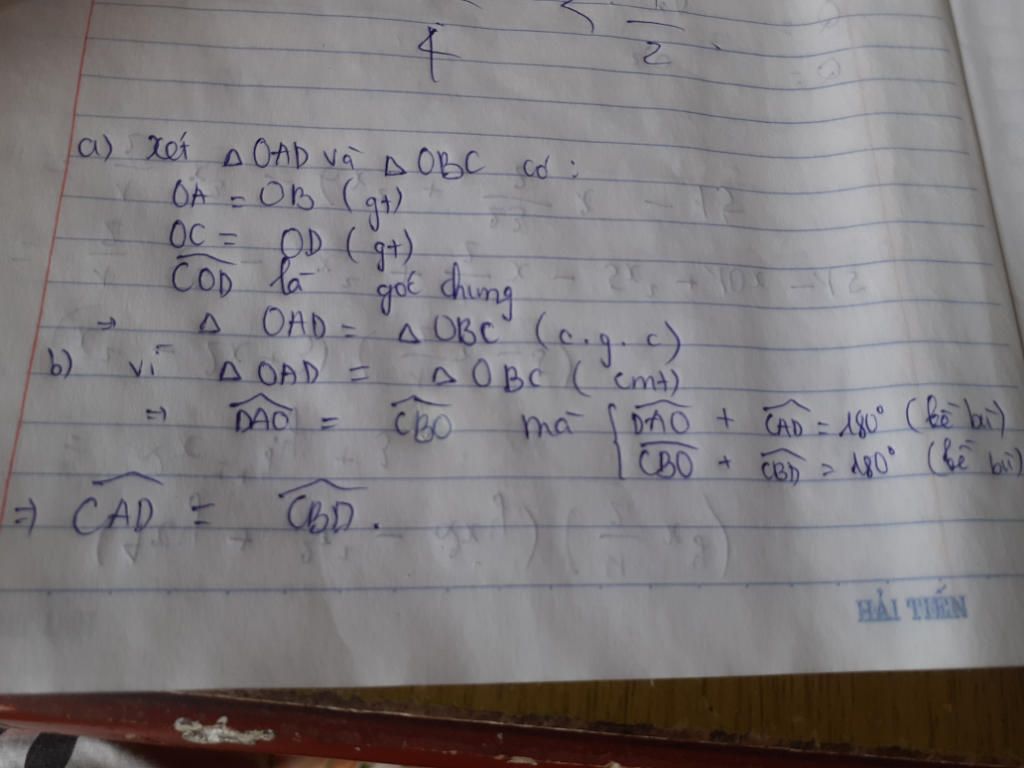 4
2
a) xét △OAD và △OBC có:
OA = OB (gt)
OC = OD (gt)
COD là góc chung
→ △ OAD = △ OBC (c.g.c)
b) vì △ OAD = △ OBC (cmt)
=> DAO = CBO mà { DAO + CAD = 180° (kề bù)
CBO + CBD = 180° (kề bù)
=> CAD = CBD.
HẢI TIẾN